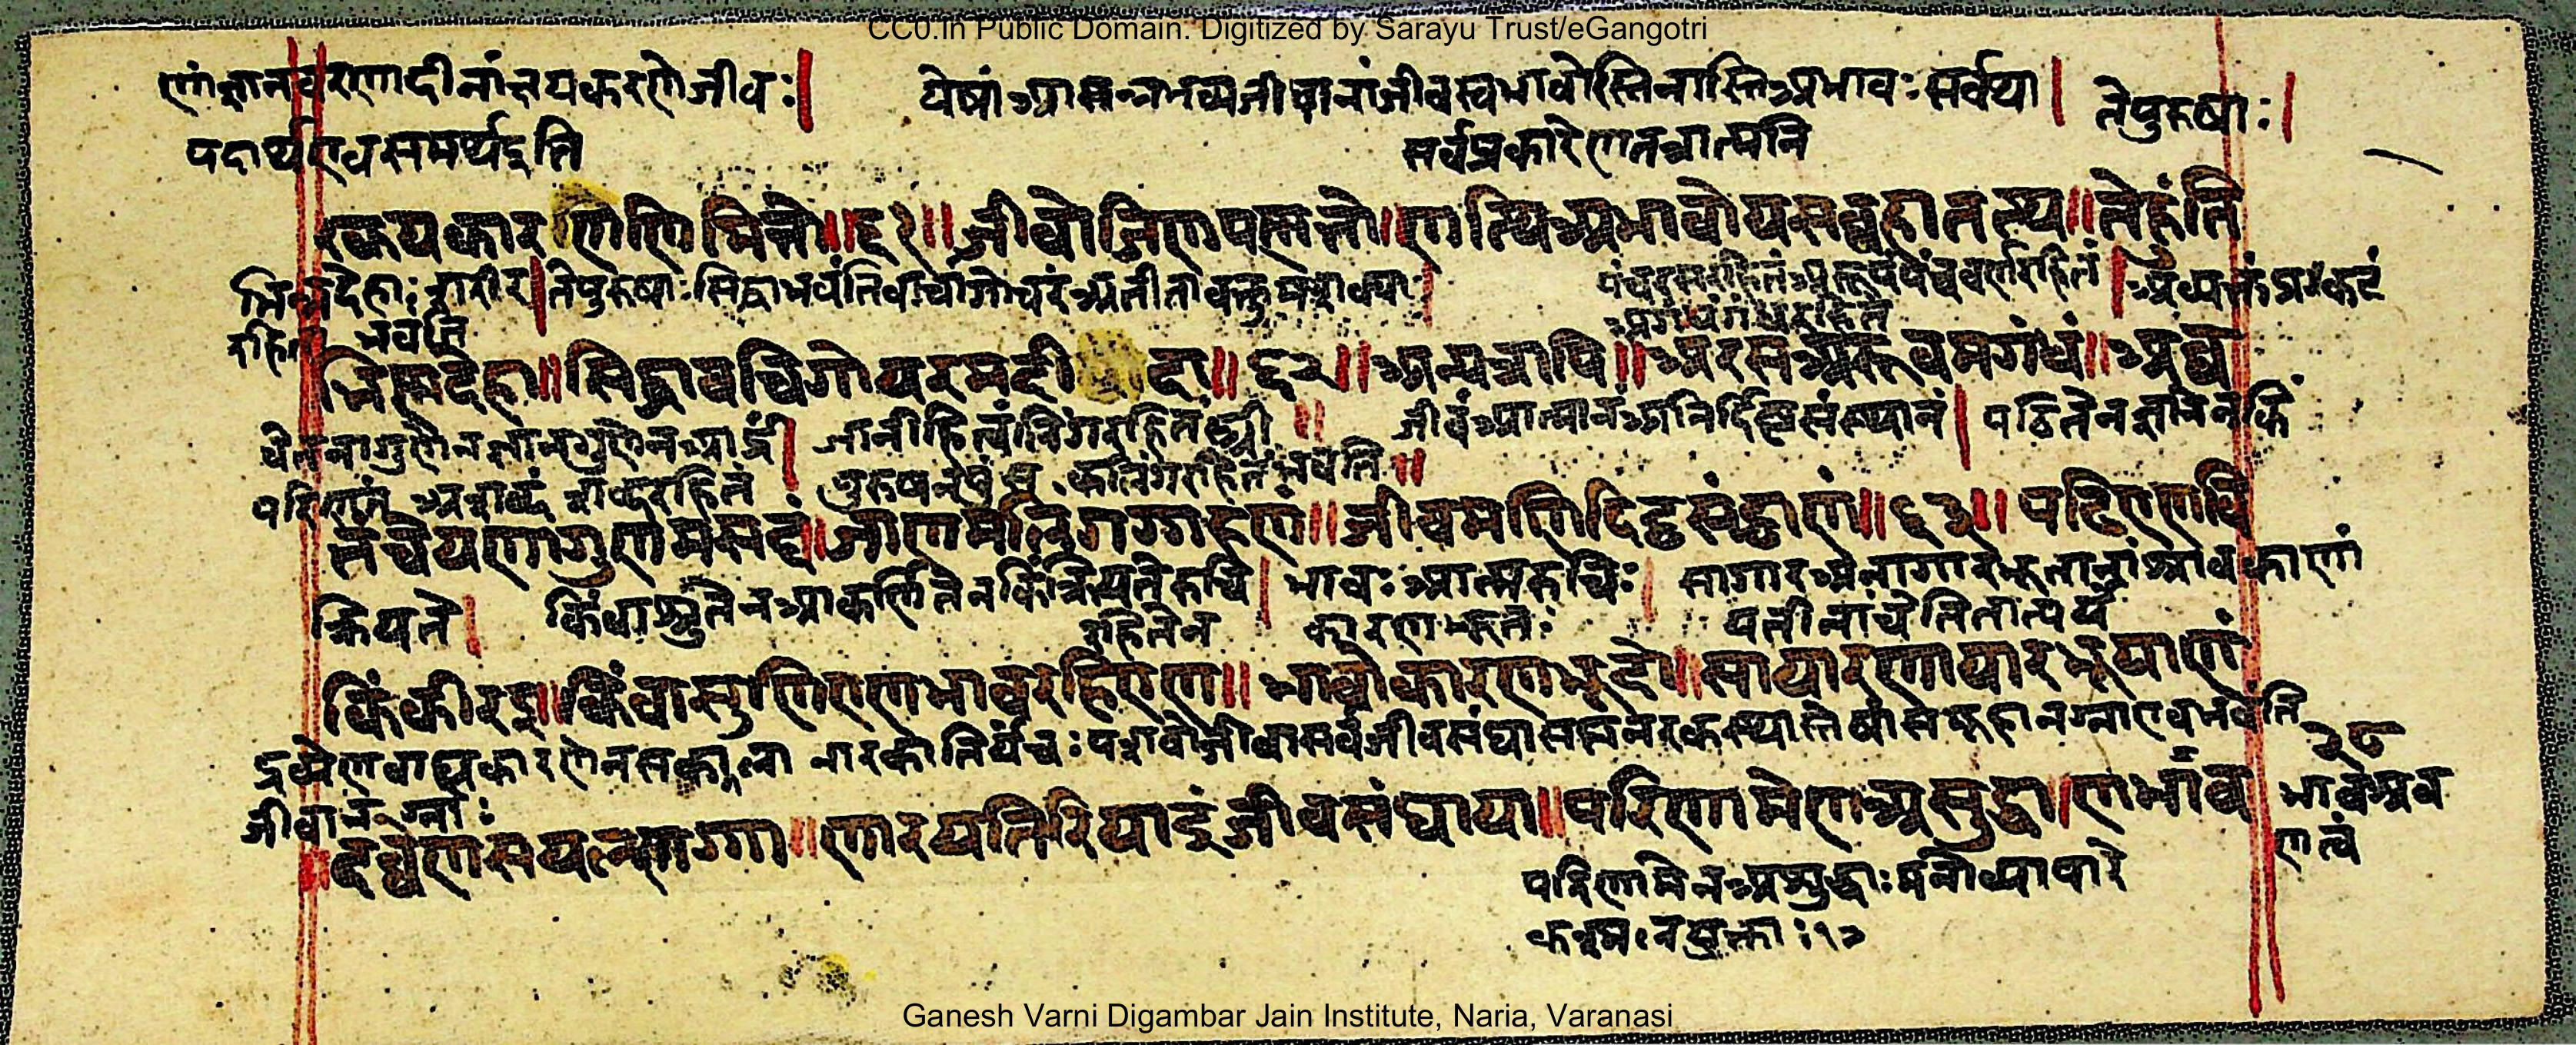 CC0.In Public Domain. Digitized by Sarayu Trust/eGangotri
णांज्ञानवरणादीनांक्षयकरणेजीवः| येषांआसन्नभव्यजीवानांजीवस्वभावोस्तिनास्तिअभावःसर्वथा| तेपुरुषाः|
पदार्थएवसमर्थइति सर्वप्रकारेणतत्रात्मनि
रकयकारणणिमित्तो॥६१॥जीवोजिणपस्मत्तो॥णत्थिअभावोयसव्वहातत्थ॥तेहुंति
भिन्नदेहाःशरीर|तेपुरुषाःसिद्धाभवंतिवाचांगोचरंअतीता पंचरसरहितंअरूपंपंचवर्णरहितं|अव्यक्तंअप्रकटं
रहिता भवंति अगंधंगंधरहितं
भिस्मदेहा॥सिद्धावचिगोयरमदी दा॥६२॥अन्यत्रापि॥अरसमरूवमगंधं॥अव्व
चेतनागुणंज्ञानगुणेन जानीहित्वंलिंगरहितंस्त्री॥ जीवंआत्मानंअनिर्दिष्टसंस्थानं|पठितेनज्ञानेनकिं
अशब्दंशब्दरहितं पुरुषनपुंसकलिंगरहितंभवति॥
त्तंचेयणागुणमसद्दं॥जाणमलिंगग्गहणं॥जीवमणिदिट्ठसंट्ठाणं॥६३॥पढिएणवि
क्रियते| किंवाश्रुतेनआकर्णितेनकिंक्रियतेरुचि|भावःआत्मरुचिः|सागारअनागारभूतानांश्रावकाणां
रहितेन कारणभूतः यतीनांचेतितात्पर्यं
किंकीरइ॥किंवासुणिएणभावरहिएण॥भावोकारणभूदो॥सायारणायारभूयाणं
द्रव्येणवाह्यकारणेनसकला नारकातिर्यंचःपशवोजीवासर्वजीवसंघा भवंति
२८
जीवानग्नाः
दव्वेणसयलणग्गा॥णारयतिरियाइंजीवसंघाया॥परिणामेणअसुद्धा|णभाव भावश्रव
णत्वं
परिणामेनअशुद्धाःमनोव्यापारे
Ganesh Varni Digambar Jain Institute, Naria, Varanasi